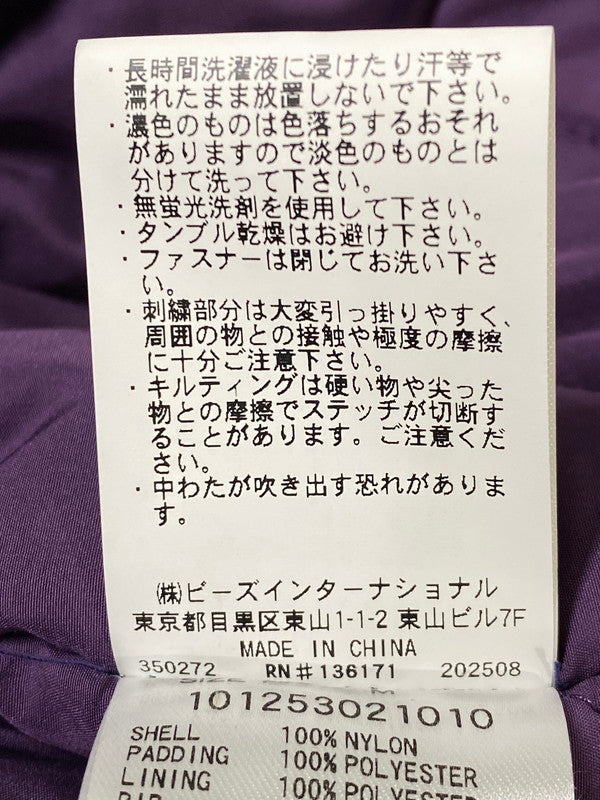 ・長時間洗濯液に浸けたり汗等で
濡れたまま放置しないで下さい。
・濃色のものは色落ちするおそれ
がありますので淡色のものとは
分けて洗って下さい。
・無蛍光洗剤を使用して下さい。
・タンブル乾燥はお避け下さい。
・ファスナーは閉じてお洗い下さ
い。
・刺繍部分は大変引っ掛りやすく、
周囲の物との接触や極度の摩擦
に十分ご注意下さい。
・キルティングは硬い物や尖った
物との摩擦でステッチが切断す
ることがあります。ご注意くだ
さい。
・中わたが吹き出す恐れがありま
す。
㈱ビーズインターナショナル
東京都目黒区東山1-1-2 東山ビル7F
MADE IN CHINA
350272 RN#136171 202508
101253021010
SHELL 100% NYLON
PADDING 100% POLYESTER
LINING 100% POLYESTER